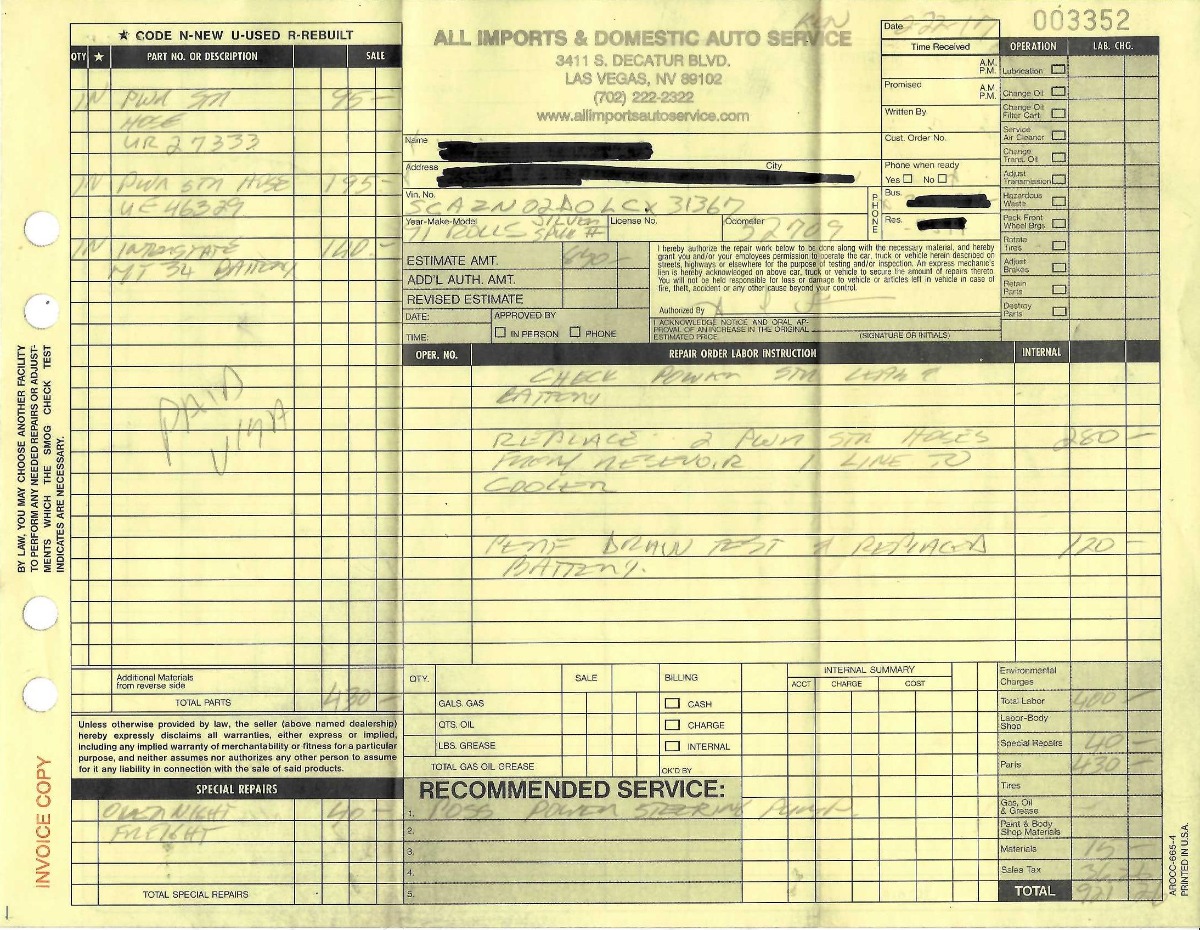 ★ CODE N-NEW U-USED R-REBUILT
QTY ★ PART NO. OR DESCRIPTION SALE
1 N PWR STR 95-
HOSE
UR 27333
1 N PWR STR HOSE 195-
UE 46329
1 N INTERSTATE 140-
MT 34 BATTERY
PAID
VISA
Additional Materials
from reverse side
TOTAL PARTS 430-
Unless otherwise provided by law, the seller (above named dealership)
hereby expressly disclaims all warranties, either express or implied,
including any implied warranty of merchantability or fitness for a particular
purpose, and neither assumes nor authorizes any other person to assume
for it any liability in connection with the sale of said products.
SPECIAL REPAIRS
OVERNIGHT 40-
FREIGHT
TOTAL SPECIAL REPAIRS
BY LAW, YOU MAY CHOOSE ANOTHER FACILITY
TO PERFORM ANY NEEDED REPAIRS OR ADJUST-
MENTS WHICH THE SMOG CHECK TEST
INDICATES ARE NECESSARY.
INVOICE COPY
RON
ALL IMPORTS & DOMESTIC AUTO SERVICE
3411 S. DECATUR BLVD.
LAS VEGAS, NV 89102
(702) 222-2322
www.allimportsautoservice.com
Name
Address City
Vin. No.
SCAZN02D0LCX31367
Year-Make-Model License No. Odometer
71 ROLLS SILVER 32709
Date
Time Received
A.M.
P.M.
Promised A.M.
P.M.
Written By
Cust. Order No.
Phone when ready
Yes No
PHONE
Bus.
Res.
003352
OPERATION LAB. CHG.
Lubrication
Change Oil
Change Oil
Filter Cart
Service
Air Cleaner
Change
Trans. Oil
Adjust
Transmission
Hazardous
Waste
Pack Front
Wheel Brgs.
Rotate
Tires
Adjust
Brakes
Retain
Parts
Destroy
Parts
ESTIMATE AMT.
ADD'L AUTH. AMT.
REVISED ESTIMATE
DATE: APPROVED BY
TIME: IN PERSON PHONE
I hereby authorize the repair work below to be done along with the necessary material, and hereby
grant you and/or your employees permission to operate the car, truck or vehicle herein described on
streets, highways or elsewhere for the purpose of testing and/or inspection. An express mechanic's
lien is hereby acknowledged on above car, truck or vehicle to secure the amount of repairs thereto.
You will not be held responsible for loss or damage to vehicle or articles left in vehicle in case of
fire, theft, accident or any other cause beyond your control.
Authorized By X
I ACKNOWLEDGE NOTICE AND ORAL AP-
PROVAL OF AN INCREASE IN THE ORIGINAL
ESTIMATED PRICE. (SIGNATURE OR INITIALS)
OPER. NO. REPAIR ORDER LABOR INSTRUCTION INTERNAL
CHECK POWER STR LEAK &
BATTERY
REPLACE 2 PWR STR HOSES 280-
FROM RESEVOIR 1 LINE TO
COOLER
PERF DRAIN TEST & REPLACED 120-
BATTERY.
QTY. SALE BILLING
GALS. GAS CASH
QTS. OIL CHARGE
LBS. GREASE INTERNAL
TOTAL GAS OIL GREASE OK'D BY
INTERNAL SUMMARY
ACCT CHARGE COST
RECOMMENDED SERVICE:
1. POSS POWER STEERING PUMP
2.
3.
4.
5.
Environmental
Charges
Total Labor 400-
Labor-Body
Shop
Special Repairs 40-
Parts 430-
Tires
Gas, Oil
& Grease
Paint & Body
Shop Materials
Materials 15-
Sales Tax
TOTAL 921
AROCC-665-4
PRINTED IN U.S.A.